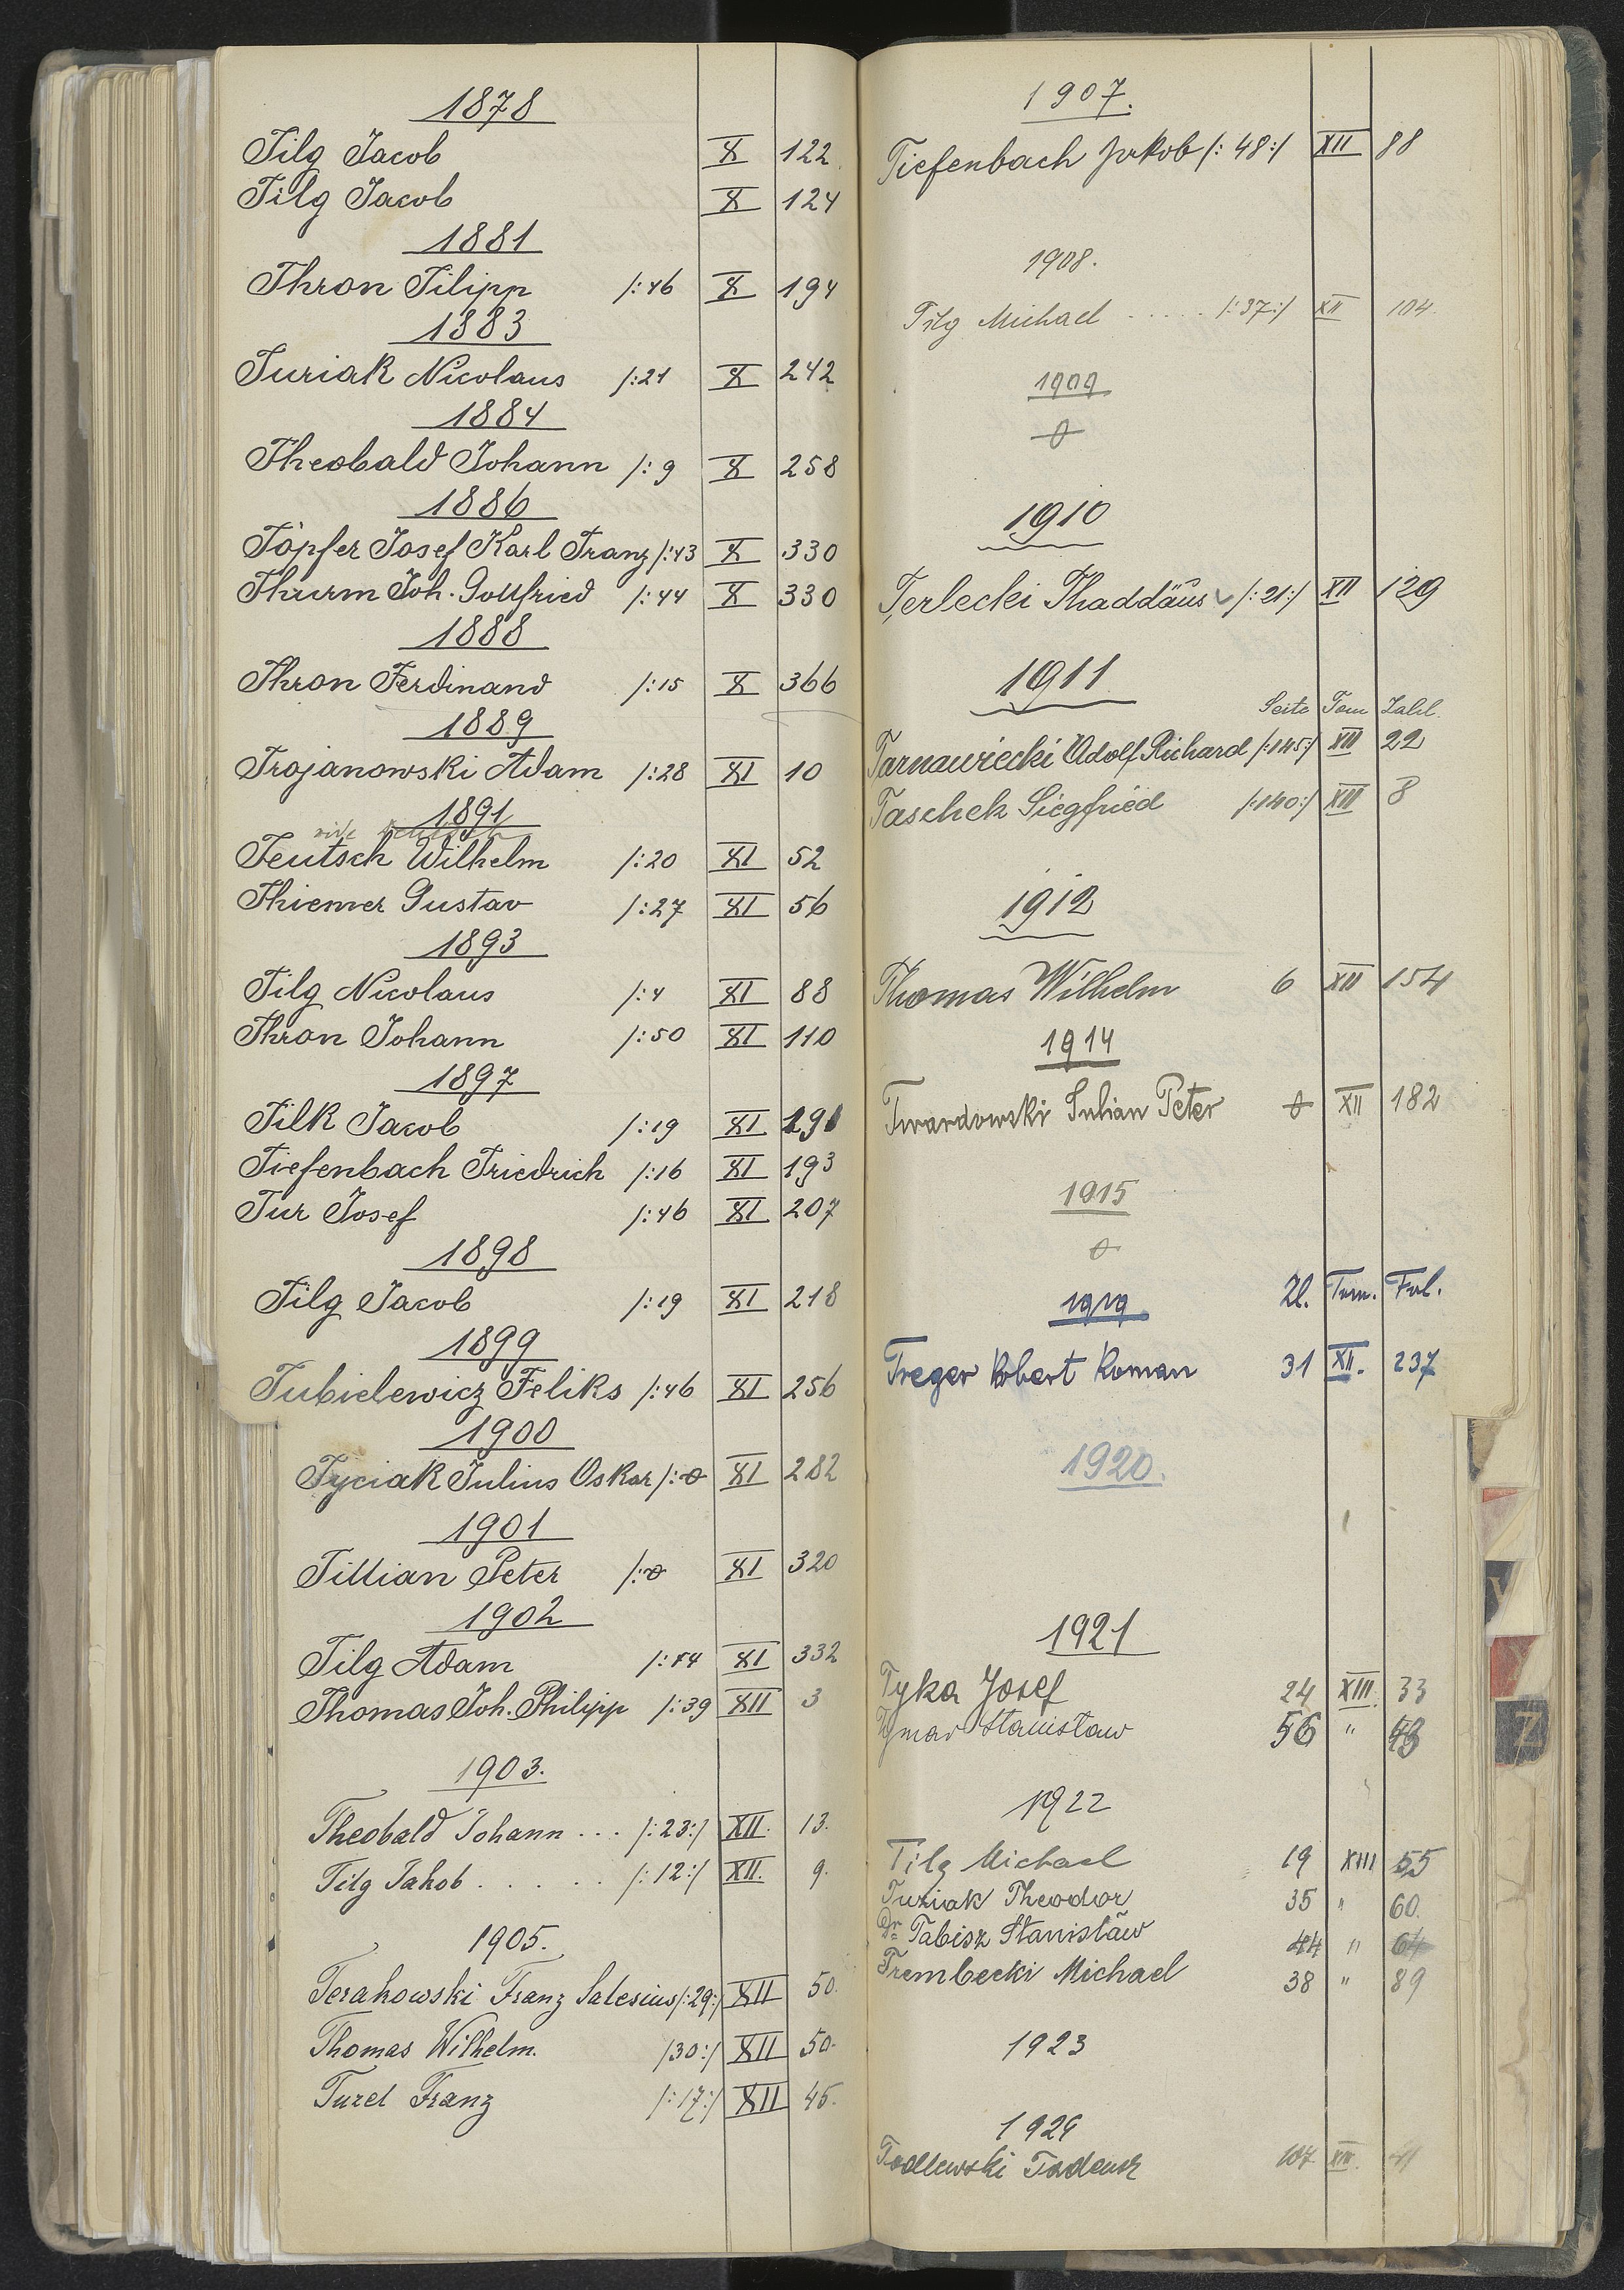 1878
Tilg Jacob X 122
Tilg Jacob X 124
1881
Thron Filipp /:46 X 194
1883
Turiak Nicolaus /:21 X 242
1884
Theobald Johann /: 9 X 258
1886
Töpfer Josef Karl Franz /:43 X 330
Thurm Joh. Gottfried /:44 X 330
1888
Thron Ferdinand /:15 X 366
1889
Trojanowski Adam /:28 XI 10
1891
Teutsch Wilhelm /:20 XI 52
Thiemer Gustav /:27 XI 56
1893
Tilg Nicolaus /:4 XI 88
Thron Johann /:50 XI 110
1897
Tilk Jacob /:19 XI 191
Tiefenbach Friedrich /:16 XI 193
Tur Josef /:46 XI 207
1898
Tilg Jacob /:19 XI 218
1899
Tubielewicz Feliks /:46 XI 256
1900
Tyciak Julius Oskar /:0 XI 282
1901
Tillian Peter /:0 XI 320
1902
Tilg Adam XI 332
Thomas Joh. Philipp /:39 XII 3
1903.
Theobald Johann ... /:23:/ XII. 13.
Tilg Jakob . . . . . . /:12:/ XII. 9.
1905.
Terakowski Franz Salesius /:29:/ XII 50.
Thomas Wilhelm. /30:/ XII 50.
Turel Franz /:17:/ XII 45.
1907.
Tiefenbach Jakob /: 48:/ XII 88
1908.
Tilg Michael . . . . . /:37:/ XII 104.
1909
0
1910
Terlecki Thaddäus /:21:/ XII 129
1911
Seite Tom Zahl.
Tarnawiecki Adolf Richard /:145:/ XII 22
Taschek Siegfried /:140:/ XII 8
1912
Thomas Wilhelm 6 XII 154
1914
Twardowski Julian Peter 0 XII 182
1915
0
1919 Zl. Tom. Fol.
Treger Robert Roman 31 XII. 237
1920.
1921
Tyka Josef 24 XIII. 33
Stanisław 56 "
1922
Tilg Michael 19 XIII 55
Turiak Theodor 35 " 60.
Dr. Tabisz Stanisław 44 " 64
Trembecki Michael 38 " 89
1923
1929
Tadeusz 107